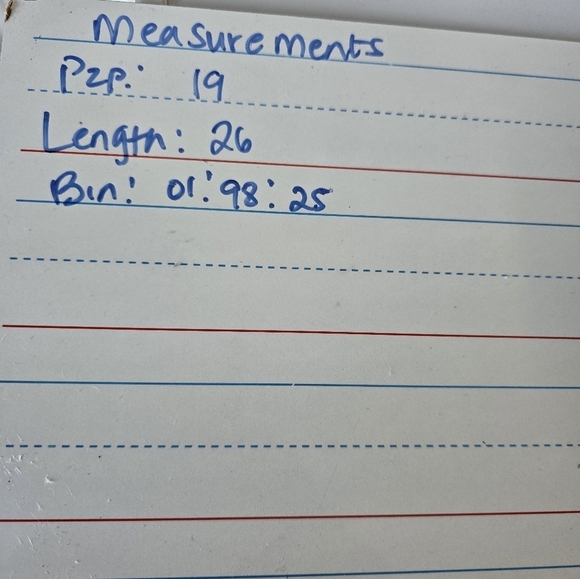 Measurements
Pzp: 19
Length: 26
Bin: 01:98:25